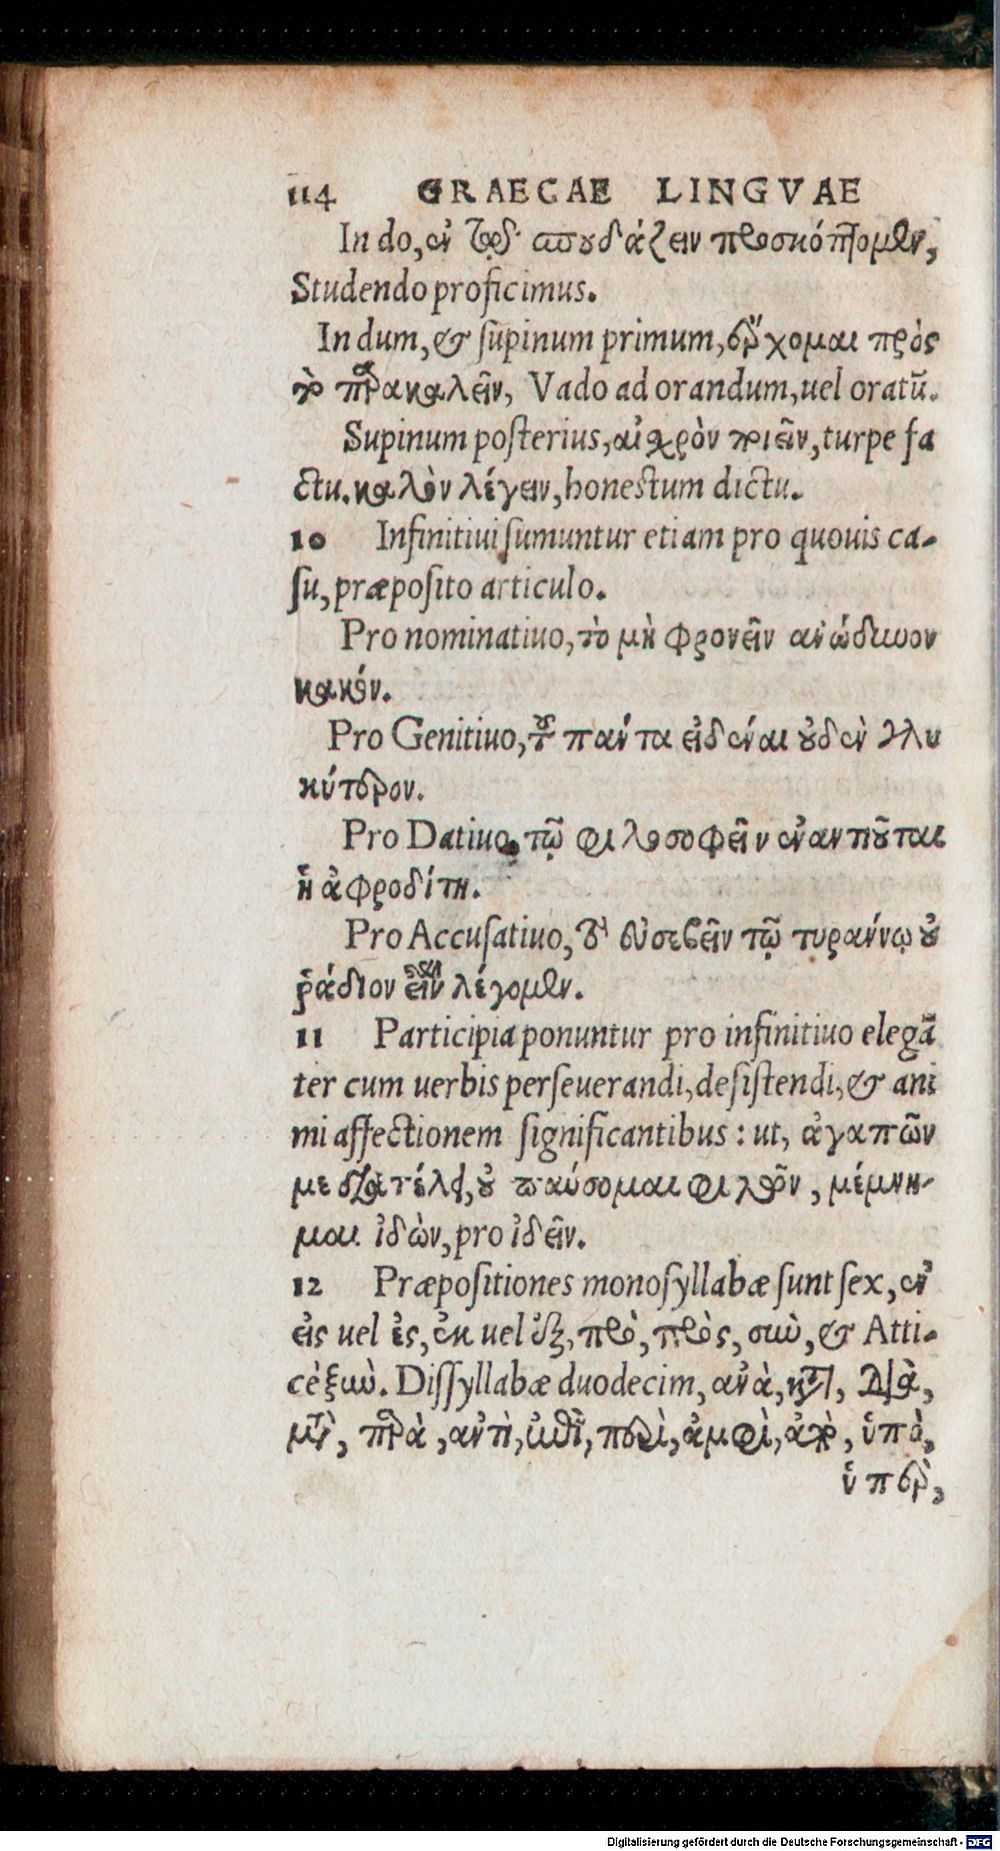 114 GRAECAE LINGVAE
In do, ἐν τῷ σπουδάζειν προσκόπτομεν,
Studendo proficimus.
In dum, & supinum primum, ἔρχομαι πρὸς
τὸ παρακαλεῖν, Vado ad orandum, uel oratū.
Supinum posterius, αἰσχρὸν ποιεῖν, turpe fa
ctu. καλὸν λέγειν, honestum dictu.
10 Infinitiui sumuntur etiam pro quouis ca-
su, præposito articulo.
Pro nominatiuo, τὸ μὴ φρονεῖν ἀνώδυνον
κακόν.
Pro Genitiuo, τοῦ πάντα εἰδέναι οὐδὲν γλυ
κύτερον.
Pro Datiuo, τῷ φιλοσοφεῖν ἐναντιοῦται
ἡ ἀφροδίτη.
Pro Accusatiuo, τὸ εὐσεβεῖν τῷ τυράννῳ οὐ
ῥάδιον εἶναι λέγομεν.
11 Participia ponuntur pro infinitiuo elegā
ter cum uerbis perseuerandi, desistendi, & ani
mi affectionem significantibus: ut, ἀγαπῶν
με διατέλει, οὐ παύσομαι φιλῶν, μέμνη-
μαι ἰδὼν, pro ἰδεῖν.
12 Præpositiones monosyllabæ sunt sex, ἐν
εἰς uel ἐς, ἐκ uel ἐξ, πρὸ, πρὸς, σὺν, & Atti-
cè ξὺν. Dissyllabæ duodecim, ἀνὰ, κατὰ, διὰ,
μετὰ, παρὰ, ἀντὶ, ἐπὶ, περὶ, ἀμφὶ, ἀπὸ, ὑπὸ,
ὑπὲρ,
Digitalisierung gefördert durch die Deutsche Forschungsgemeinschaft - DFG